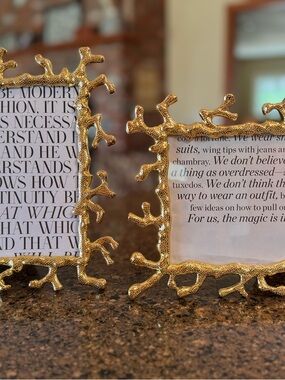 BE MODER
HION, IT IS
S NECESS
ERSTAND T
AND HE W
RSTANDS
OWS HOW
TINUITY B
AT WHIC
HAT WHIC
D THAT W
We wear s
suits, wing tips with jeans a
chambray. We don't believe
a thing as overdressed—
tuxedos. We don't think th
way to wear an outfit, b
few ideas on how to pull o
For us, the magic is i